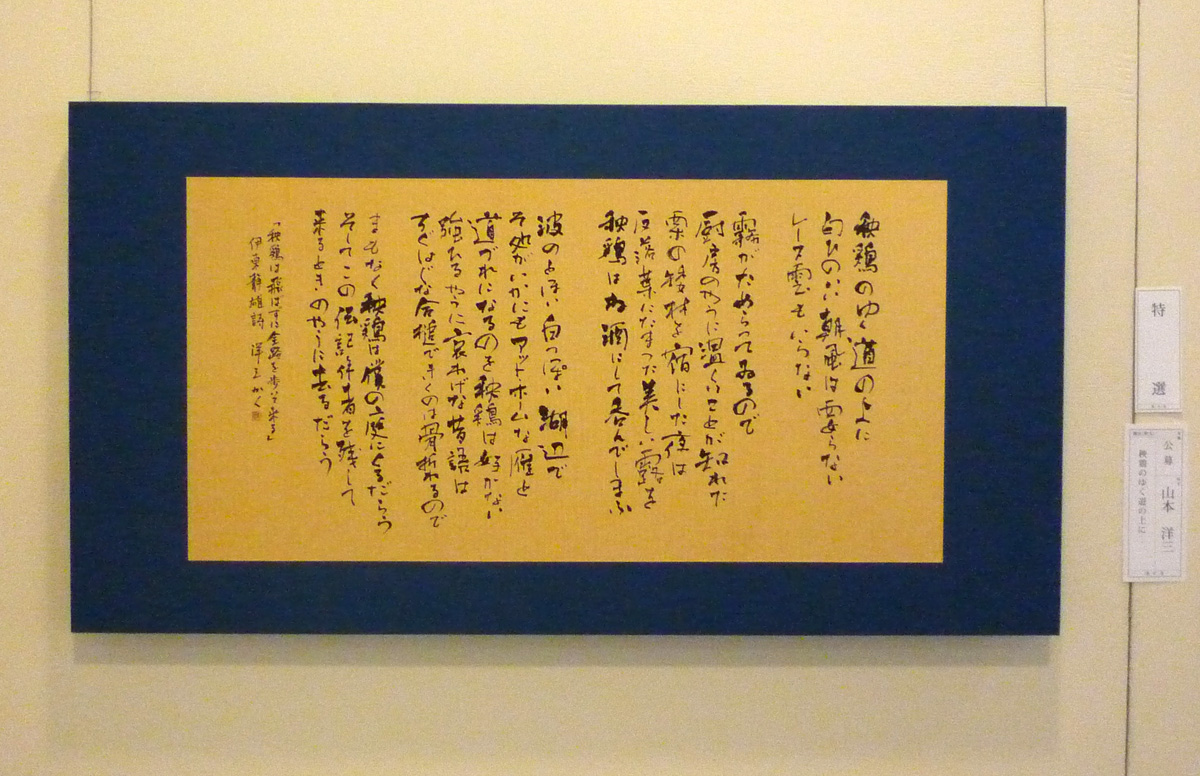 秧鶏のゆく道の上に
匂ひのいい朝風は要らない
レース雲もいらない
霧がためらつてゐるので
厨房のやうに温くいことが知れた
栗の矮林を宿にした夜は
反落葉にたまつた美しい露を
秧鶏はね酒にして呑んでしまふ
波のとほい白つぽい湖辺で
そ処がいかにもアツトホームな雁と
道づれになるのを秧鶏は好かない
強ひるやうに哀れげな昔語は
ちぐはぐな合槌できくのは骨折れるので
まもなく秧鶏は僕の庭にくるだらう
そしてこの伝記作者を残して
来るときのやうに去るだらう
「秧鶏は飛ばずに全路を歩いて来る」
伊東静雄詩 洋三かく
特選
公募
山本 洋三
秧鶏のゆく道の上に